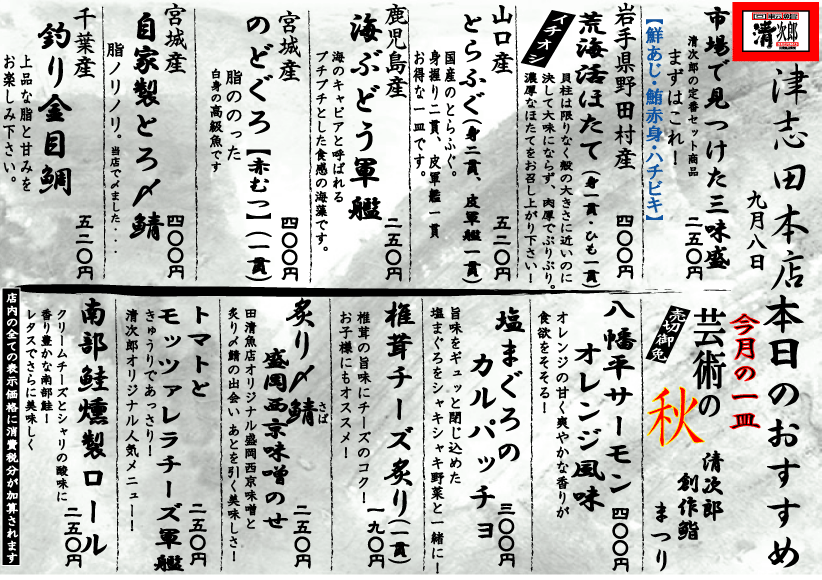 回転鮨
清次郎
津志田本店本日のおすすめ
九月八日
市場で見つけた三味盛
清次郎の定番セット商品
まずはこれ!
【鮮あじ・鮪赤身・ハチビキ】
二五〇円
岩手県野田村産
荒海活ほたて(身一貫・ひも一貫)
イチオシ
貝柱は限りなく殻の大きさに近いのに
決して大味にならず、肉厚でぷりぷり。
濃厚なほたてをお召し上がり下さい!
四〇〇円
山口産
とらふぐ(身二貫、皮軍艦一貫)
国産のとらふぐ。
身握り二貫、皮軍艦一貫
お得な一皿です。
五二〇円
鹿児島産
海ぶどう軍艦
海のキャビアと呼ばれる
プチプチとした食感の海藻です。
二五〇円
宮城産
のどぐろ【赤むつ】(一貫)
脂ののった
白身の高級魚です
四〇〇円
宮城産
自家製とろ〆鯖
脂ノリノリ。当店で〆ました・・・
四〇〇円
千葉産
釣り金目鯛
上品な脂と甘みを
お楽しみ下さい。
五二〇円
今月の一皿
売切御免
芸術の
秋
清次郎
創作鮨
まつり
八幡平サーモン
オレンジ風味
オレンジの甘く爽やかな香りが
食欲をそそる!
四〇〇円
塩まぐろの
カルパッチョ
旨味をギュッと閉じ込めた
塩まぐろをシャキシャキ野菜と一緒に!
三〇〇円
椎茸チーズ炙り(一貫)
椎茸の旨味にチーズのコク!
お子様にもオススメ!
一九〇円
炙り〆鯖
さば
盛岡西京味噌のせ
田清魚店オリジナル盛岡西京味噌と
炙り〆鯖の出会い あとを引く美味しさ!
二五〇円
トマトと
モッツァレラチーズ軍艦
きゅうりであっさり!
清次郎オリジナル人気メニュー!
二五〇円
南部鮭燻製ロール
クリームチーズとシャリの酸味に
香り豊かな南部鮭!
レタスでさらに美味しく
二五〇円
店内の全ての表示価格に消費税分が加算されます